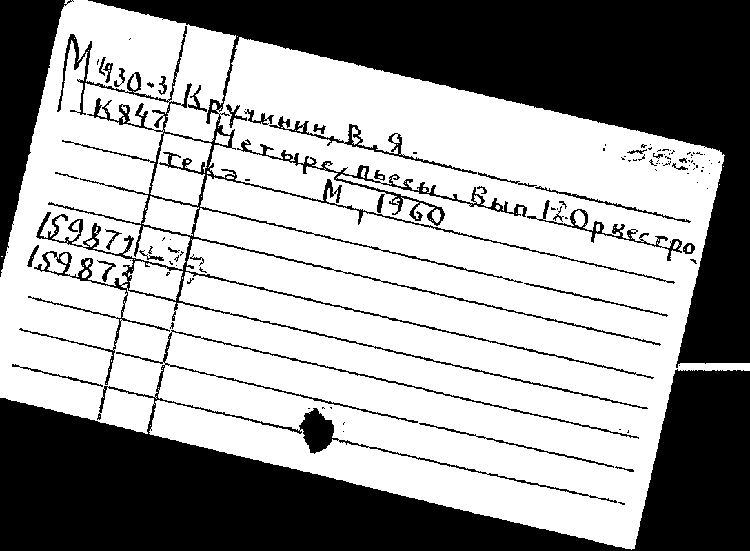 М Ч30-3 Кручинин, В. Я.
К847 Четыре пьесы. Вып 1-2 Оркестро
тека. М., 1960
159871
159873